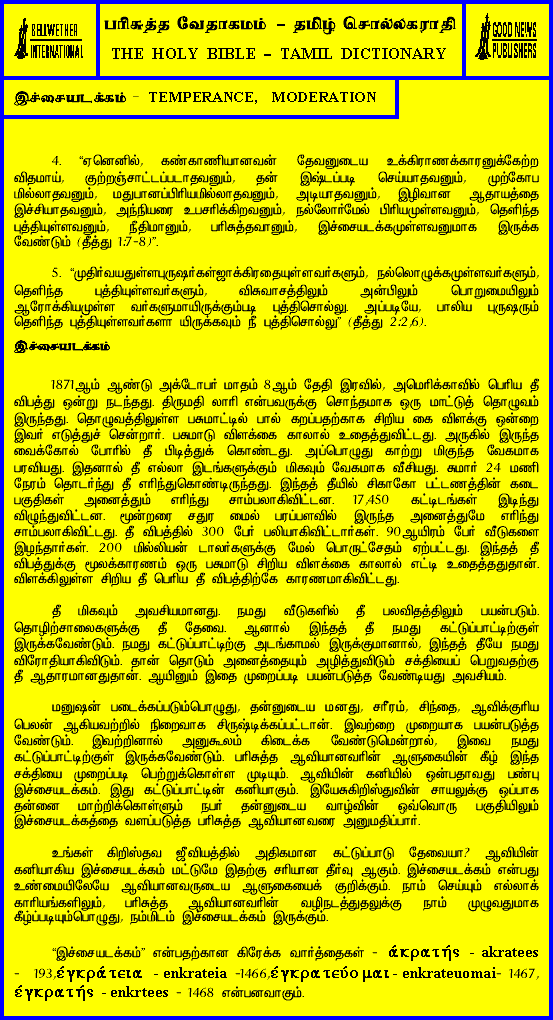 BELLWETHER
INTERNATIONAL
பரிசுத்த வேதாகமம் – தமிழ் சொல்லகராதி
THE HOLY BIBLE – TAMIL DICTIONARY
GOOD NEWS
PUBLISHERS
இச்சையடக்கம் – TEMPERANCE, MODERATION
4. “ஏனெனில், கண்காணியானவன் தேவனுடைய உக்கிராணக்காரனுக்கேற்ற
விதமாய், குற்றஞ்சாட்டப்படாதவனும், தன் இஷ்டப்படி செய்யாதவனும், முற்கோப
மில்லாதவனும், மதுபானப்பிரியமில்லாதவனும், அடியாதவனும், இழிவான ஆதாயத்தை
இச்சியாதவனும், அந்நியரை உபசரிக்கிறவனும், நல்லோர்மேல் பிரியமுள்ளவனும், தெளிந்த
புத்தியுள்ளவனும், நீதிமானும், பரிசுத்தவானும், இச்சையடக்கமுள்ளவனுமாக இருக்க
வேண்டும் (தீத்து 1:7-8)”.
5. “முதிர்வயதுள்ளபுருஷர்கள்ஜாக்கிரதையுள்ளவர்களும், நல்லொழுக்கமுள்ளவர்களும்,
தெளிந்த புத்தியுள்ளவர்களும், விசுவாசத்திலும் அன்பிலும் பொறுமையிலும்
ஆரோக்கியமுள்ள வர்களுமாயிருக்கும்படி புத்திசொல்லு. அப்படியே, பாலிய புருஷரும்
தெளிந்த புத்தியுள்ளவர்களா யிருக்கவும் நீ புத்திசொல்லு” (தீத்து 2:2,6).
இச்சையடக்கம்
1871ஆம் ஆண்டு அக்டோபர் மாதம் 8ஆம் தேதி இரவில், அமெரிக்காவில் பெரிய தீ
விபத்து ஒன்று நடந்தது. திருமதி லாரி என்பவருக்கு சொந்தமாக ஒரு மாட்டுத் தொழுவம்
இருந்தது. தொழுவத்திலுள்ள பசுமாட்டில் பால் கறப்பதற்காக சிறிய கை விளக்கு ஒன்றை
இவர் எடுத்துச் சென்றார். பசுமாடு விளக்கை காலால் உதைத்துவிட்டது. அருகில் இருந்த
வைக்கோல் போரில் தீ பிடித்துக் கொண்டது. அப்பொழுது காற்று மிகுந்த வேகமாக
பரவியது. இதனால் தீ எல்லா இடங்களுக்கும் மிகவும் வேகமாக வீசியது. சுமார் 24 மணி
நேரம் தொடர்ந்து தீ எரிந்துகொண்டிருந்தது. இந்தத் தீயில் சிகாகோ பட்டணத்தின் கடை
பகுதிகள் அனைத்தும் எரிந்து சாம்பலாகிவிட்டன. 17,450 கட்டிடங்கள் இடிந்து
விழுந்துவிட்டன. மூன்றரை சதுர மைல் பரப்பளவில் இருந்த அனைத்துமே எரிந்து
சாம்பலாகிவிட்டது. தீ விபத்தில் 300 பேர் பலியாகிவிட்டார்கள். 90ஆயிரம் பேர் வீடுகளை
இழந்தார்கள். 200 மில்லியன் டாலர்களுக்கு மேல் பொருட்சேதம் ஏற்பட்டது. இந்தத் தீ
விபத்துக்கு மூலக்காரணம் ஒரு பசுமாடு சிறிய விளக்கை காலால் எட்டி உதைத்ததுதான்.
விளக்கிலுள்ள சிறிய தீ பெரிய தீ விபத்திற்கே காரணமாகிவிட்டது.
தீ மிகவும் அவசியமானது. நமது வீடுகளில் தீ பலவிதத்திலும் பயன்படும்.
தொழிற்சாலைகளுக்கு தீ தேவை. ஆனால் இந்தத் தீ நமது கட்டுப்பாட்டிற்குள்
இருக்கவேண்டும். நமது கட்டுப்பாட்டிற்கு அடங்காமல் இருக்குமானால், இந்தத் தீயே நமது
விரோதியாகிவிடும். தான் தொடும் அனைத்தையும் அழித்துவிடும் சக்தியைப் பெறுவதற்கு
தீ ஆதாரமானதுதான். ஆயினும் இதை முறைப்படி பயன்படுத்த வேண்டியது அவசியம்.
மனுஷன் படைக்கப்படும்பொழுது, தன்னுடைய மனது, சரீரம், சிந்தை, ஆவிக்குரிய
பெலன் ஆகியவற்றில் நிறைவாக சிருஷ்டிக்கப்பட்டான். இவற்றை முறையாக பயன்படுத்த
வேண்டும். இவற்றினால் அனுகூலம் கிடைக்க வேண்டுமென்றால், இவை நமது
கட்டுப்பாட்டிற்குள் இருக்கவேண்டும். பரிசுத்த ஆவியானவரின் ஆளுகையின் கீழ் இந்த
சக்தியை முறைப்படி பெற்றுக்கொள்ள முடியும். ஆவியின் கனியில் ஒன்பதாவது பண்பு
இச்சையடக்கம். இது கட்டுப்பாட்டின் கனியாகும். இயேசுகிறிஸ்துவின் சாயலுக்கு ஒப்பாக
தன்னை மாற்றிக்கொள்ளும் நபர் தன்னுடைய வாழ்வின் ஒவ்வொரு பகுதியிலும்
இச்சையடக்கத்தை வளப்படுத்த பரிசுத்த ஆவியானவரை அனுமதிப்பார்.
உங்கள் கிறிஸ்தவ ஜீவியத்தில் அதிகமான கட்டுப்பாடு தேவையா? ஆவியின்
கனியாகிய இச்சையடக்கம் மட்டுமே இதற்கு சரியான தீர்வு ஆகும். இச்சையடக்கம் என்பது
உண்மையிலேயே ஆவியானவருடைய ஆளுகையைக் குறிக்கும். நாம் செய்யும் எல்லாக்
காரியங்களிலும், பரிசுத்த ஆவியானவரின் வழிநடத்துதலுக்கு நாம் முழுவதுமாக
கீழ்ப்படியும்பொழுது, நம்மிடம் இச்சையடக்கம் இருக்கும்.
“இச்சையடக்கம்” என்பதற்கான கிரேக்க வார்த்தைகள் – ἀκρατής - akratees
– 193,ἐγκράτεια - enkrateia -1466,ἐγκρατεύομαι - enkrateuomai- 1467,
ἐγκρατής - enkrtees – 1468 என்பனவாகும்.